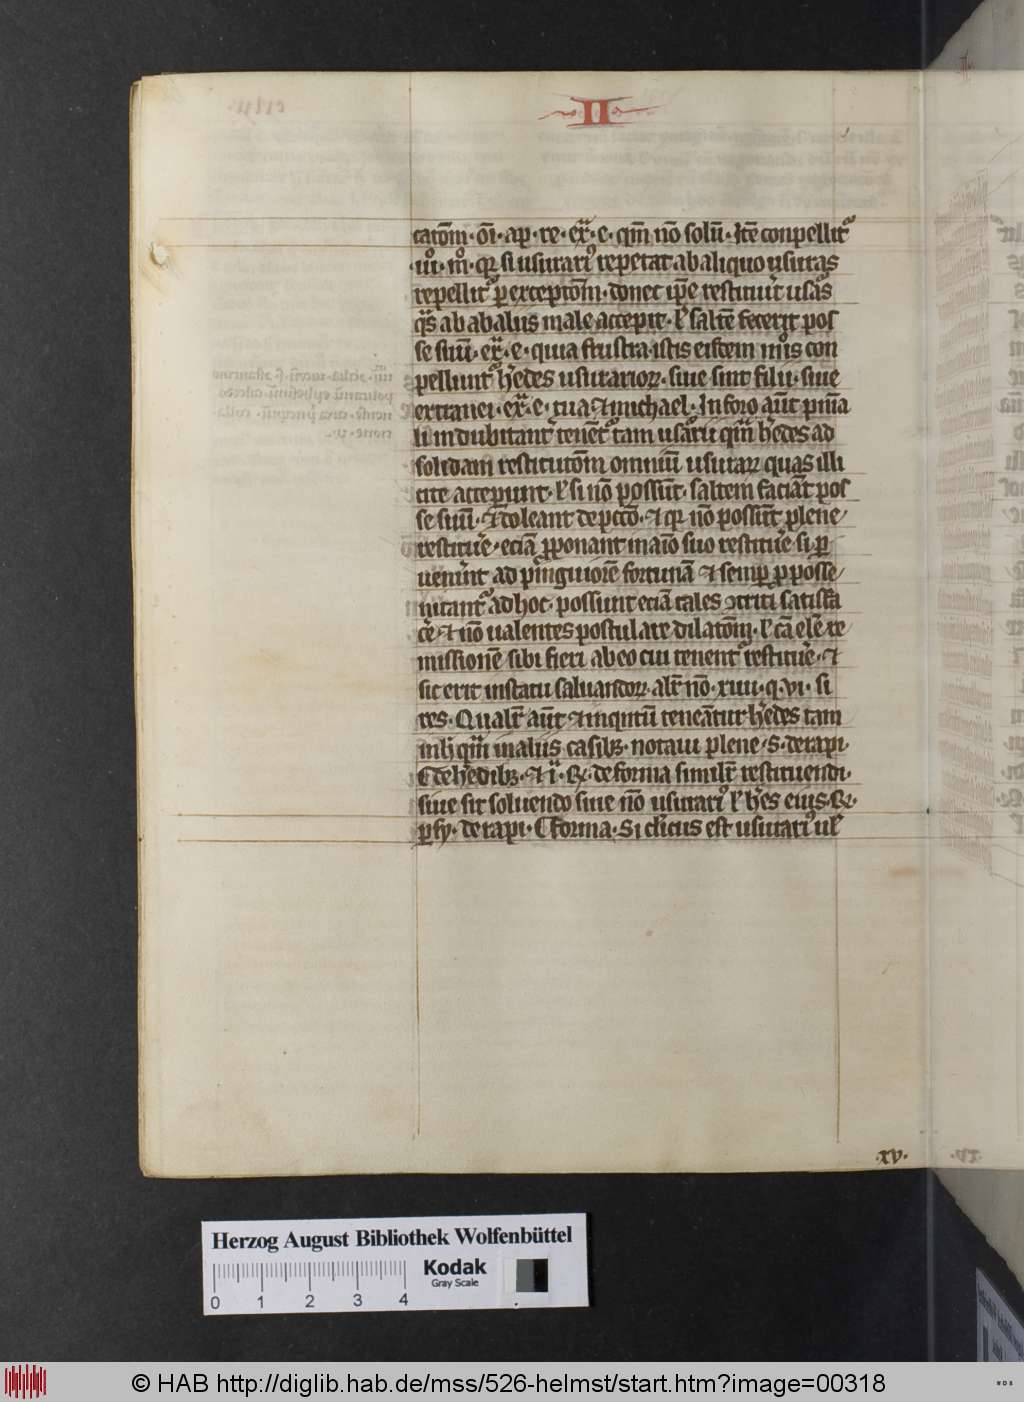 II
tatōm · oī · ap̄ · re · ex̄ · e · qm̄ nō solū · Itē conpellitᷣ
·iiiº· mº · qꝛ si usurariꝰ repetat ab aliquo usuras
repellitᷣ ꝑ exceptōm · donec ip̄e restituīt usᷓs
qᷓs ab abalus male accepit · ł saltē fecerit pos
se suū · ex̄ · e · quia frustra · istis eisdem mºis con
pelluntᷣ h̄edes usurarioꝝ · siue sint filii · siue
extranei · ex̄ · e · tua ⁊ michael · In foro aūt pn̄ia
li indubitantᷣ tenētᷣ tam usᷓrii qm̄ h̄edes ad
solidam restitutōm omniū usuraꝝ quas illi
cite acceperunt · ł si nō possūt · saltem faciāt pos
se suū · ⁊ doleant de pctō · ⁊ qꝛ nō possūt plene
restitue̅ · eciā ꝓponant in aīo suo restitue̅ si ꝑ
uenīnt ad pinguiorē fortunā ⁊ semꝑ ꝓ posse
nitantᷣ ad hoc · possunt eciā tales ↄtriti satisfa
ce̅ · ⁊ nō ualentes postulare dilatōm · ł cā elēe re
missionē sibi fieri ab eo cui tenentᷣ restitue̅ · ⁊
sic erit in statu saluandoꝝ · alr̄ nō · xiiii · q · vi · si
res · Qualr̄ aūt ⁊ inqntū teneātur h̄edes tam
in h̄ qm̄ in aliis casibꝫ · notaui plene · s · de rapi ·
¶ de h̄edibꝫ · ⁊ · ii · ⁊c · de forma simil̄r restituendi ·
siue sit soluendo siue nō usurariꝰ ł h̄es eius · ⁊c ·
ꝑ fy · de rapi · ¶ forma · Si cl̄icus est usurariꝰ ul̄
·xv·
Herzog August Bibliothek Wolfenbüttel
Kodak
Gray Scale
0 1 2 3 4
© HAB http://diglib.hab.de/mss/526-helmst/start.htm?image=00318